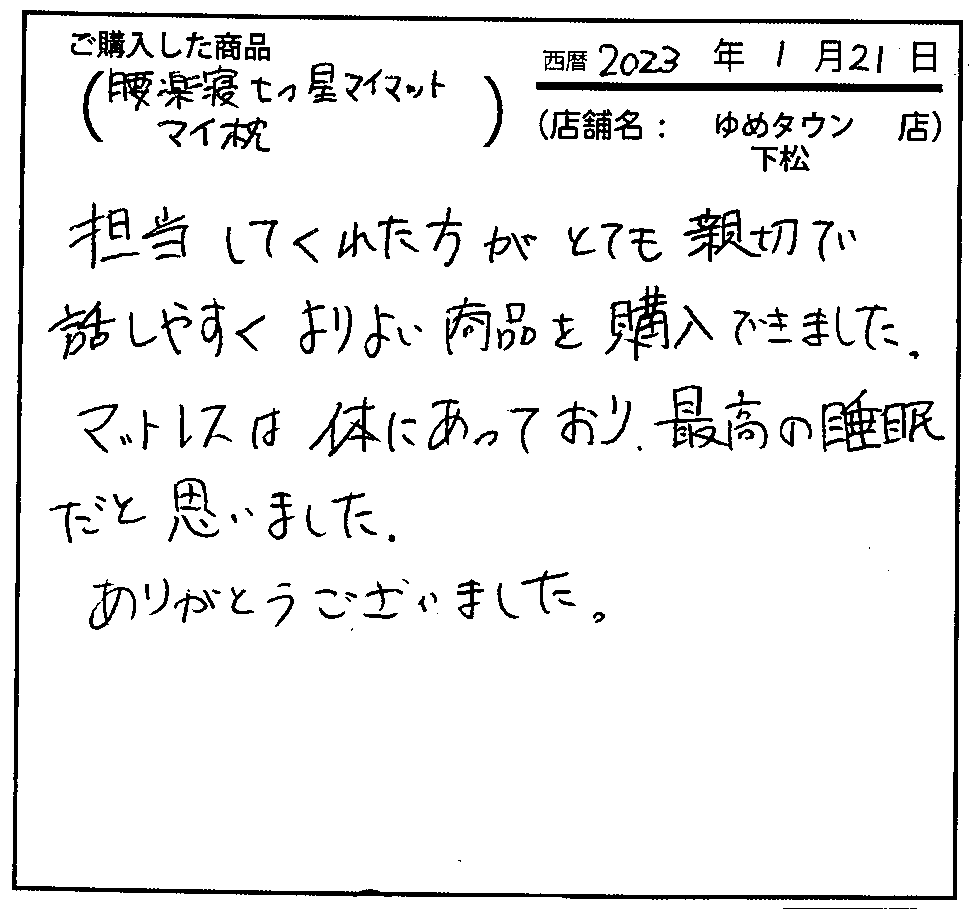 ご購入した商品
(腰楽寝七つ星マイマット
マイ枕)
西暦 2023 年 1 月 21 日
(店舗名： ゆめタウン 店)
下松
担当してくれた方がとても親切で
話しやすくよりよい商品を購入できました.
マットレスは体にあっており.最高の睡眠
だと思いました.
ありがとうございました。